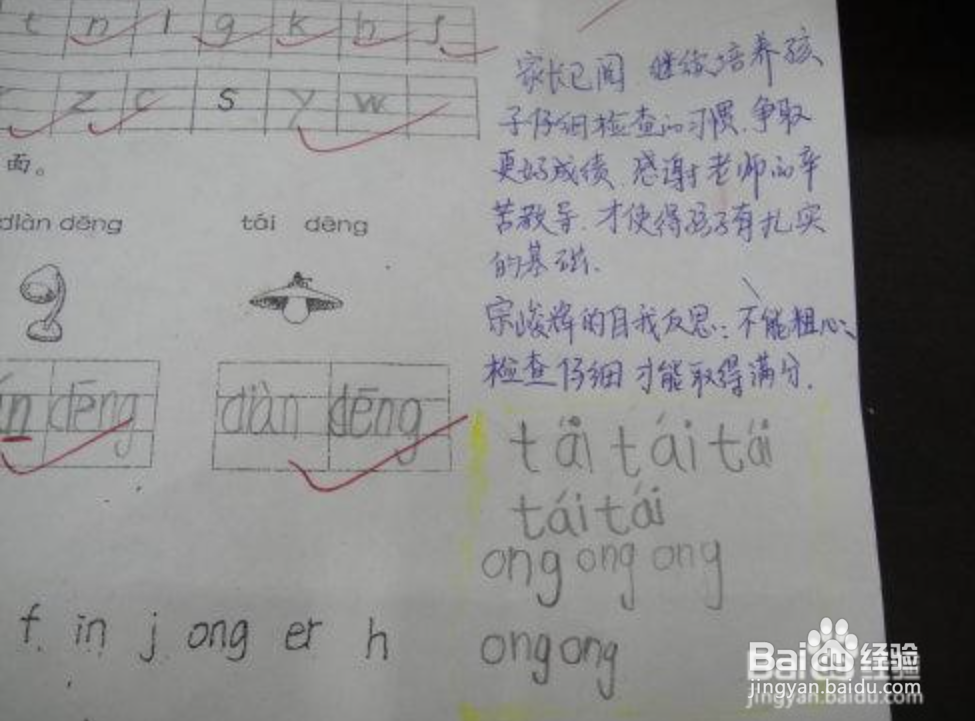 t n l g k h f
z c s y w
面。
diàn dēng tái dēng
家长已阅 继续培养孩
子仔细检查的习惯,争取
更好成绩.感谢老师的辛
苦教导.才使得孩子有扎实
的基础.
宗峻辉的自我反思:不能粗心、
检查仔细才能取得满分.
dēng diàn dēng
tái tái tái
tái tái
ong ong ong
f in j ong er h
ong ong
Baidu经验
jingyan.baidu.com